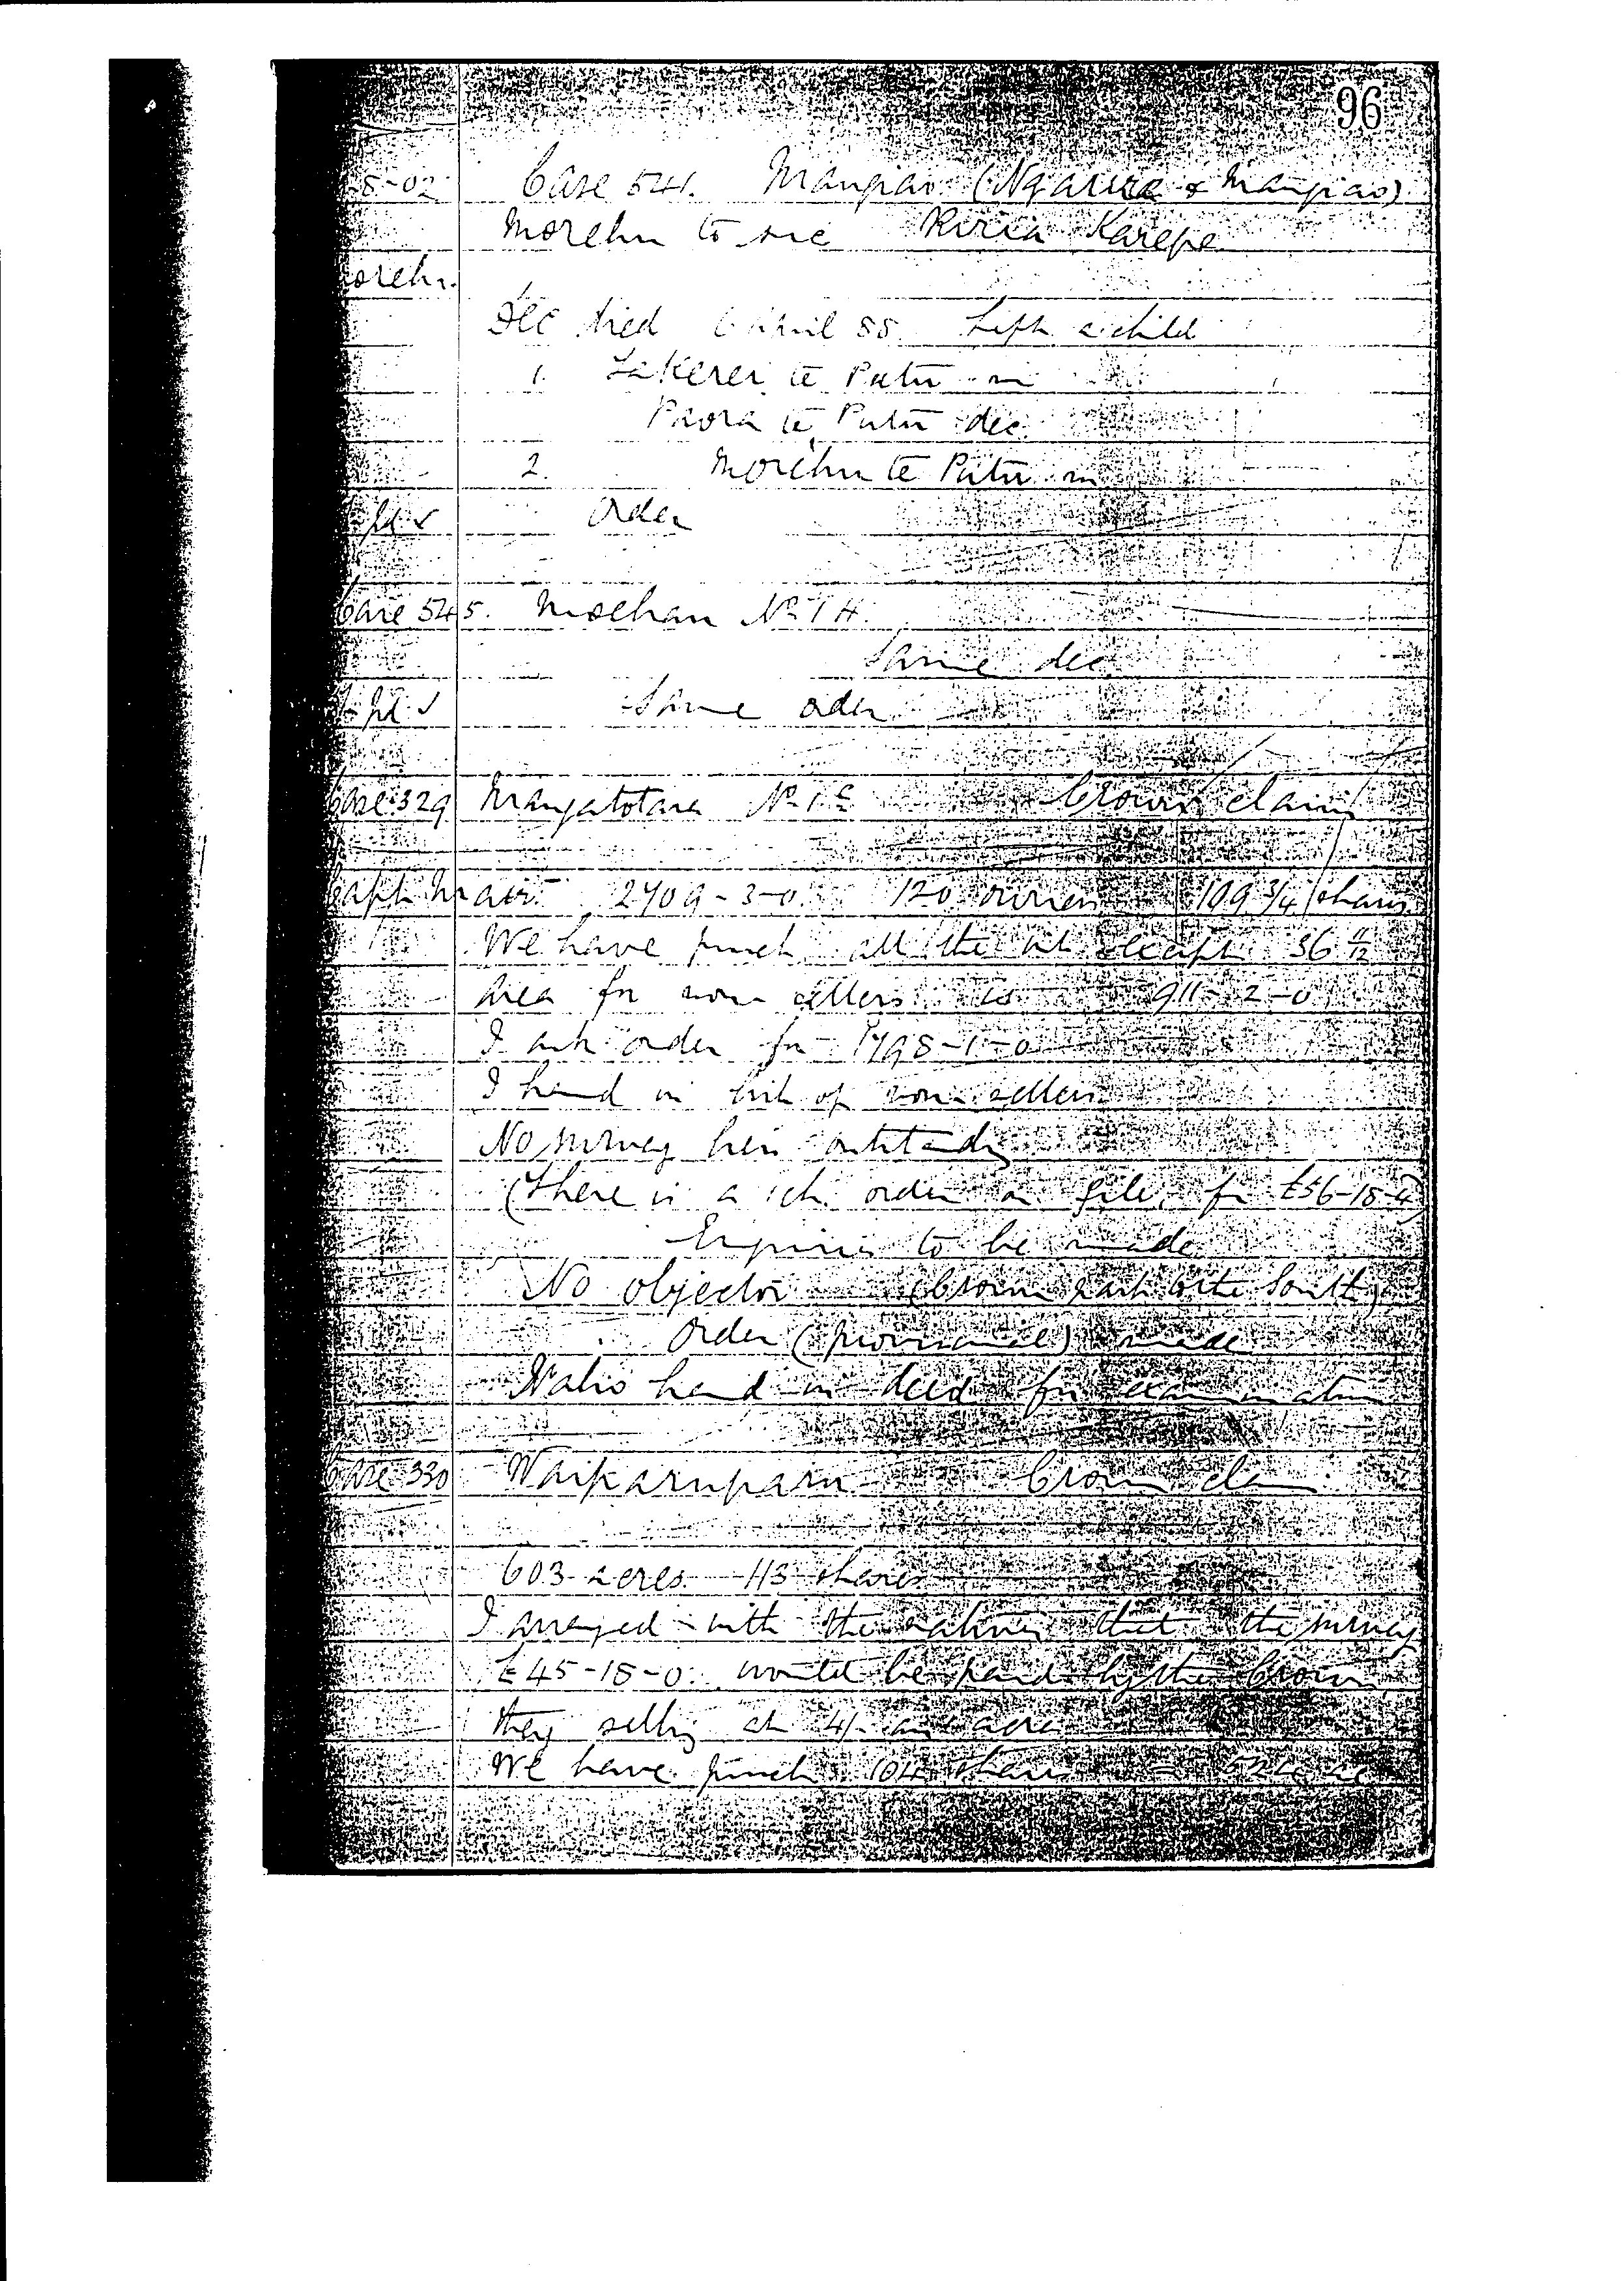 96
8-02 Case 541. Mangiao (Ngaurra & Mangiao)
Morehu to suc Riria Karepe
orehu.
Dec died 6 April 88. Left a child
1. Takerei te Putu m
Paora te Putu dec
2. Morehu te Putu m
pd ✓ Order
Case 545. Moehau No 1 H.
Same dec
pd ✓ Same order
Case 329 Mangatotara No 1 E Crown claim
Capt Mair 2709-3-0 120 owners 109 3/4 shares
We have purch all the int except 36 11/12
Area for non sellers is 911-2-0
I ask order for 1798-1-0
I hand in list of non sellers
No survey lien outstandg
(There is a ch. order on file, for £56-18-4)
Enquiries to be made
No objector (Crown part to the South)
Order (provisional) made
hand in deed for examination
Case 330 Waiparuparu Crown clm
603 acres 113 shares
I arranged with the natives that the survey
£45-18-0 would be paid by the Crown
they sellg at 4/- an acre
We have purch 104 shares = 524 ac